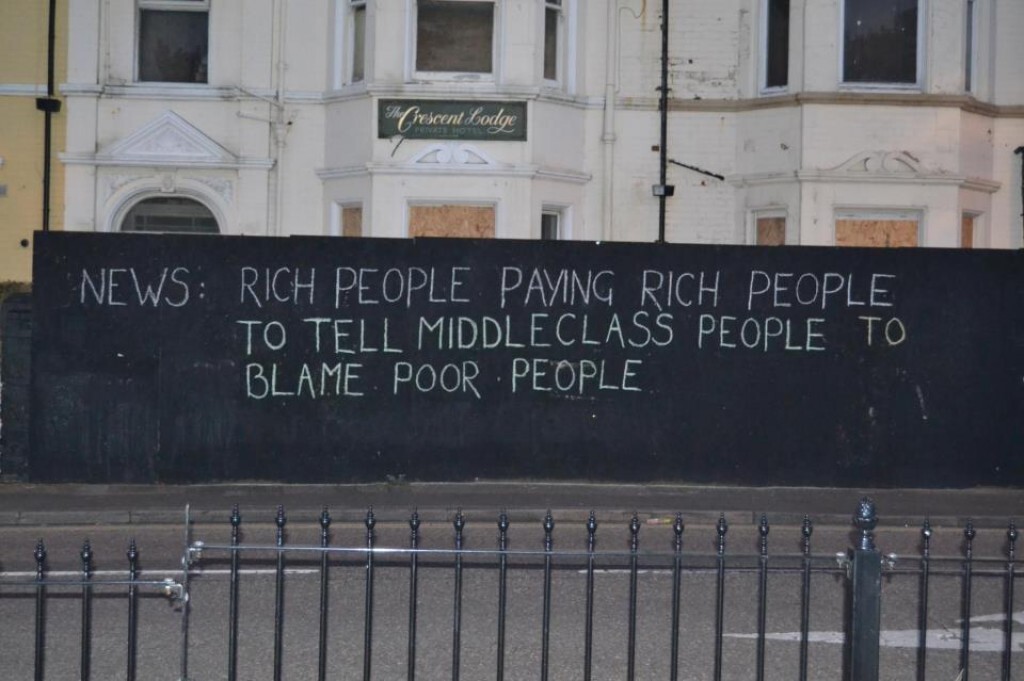 The Crescent Lodge
PRIVATE HOTEL
NEWS: RICH PEOPLE PAYING RICH PEOPLE
TO TELL MIDDLECLASS PEOPLE TO
BLAME POOR PEOPLE